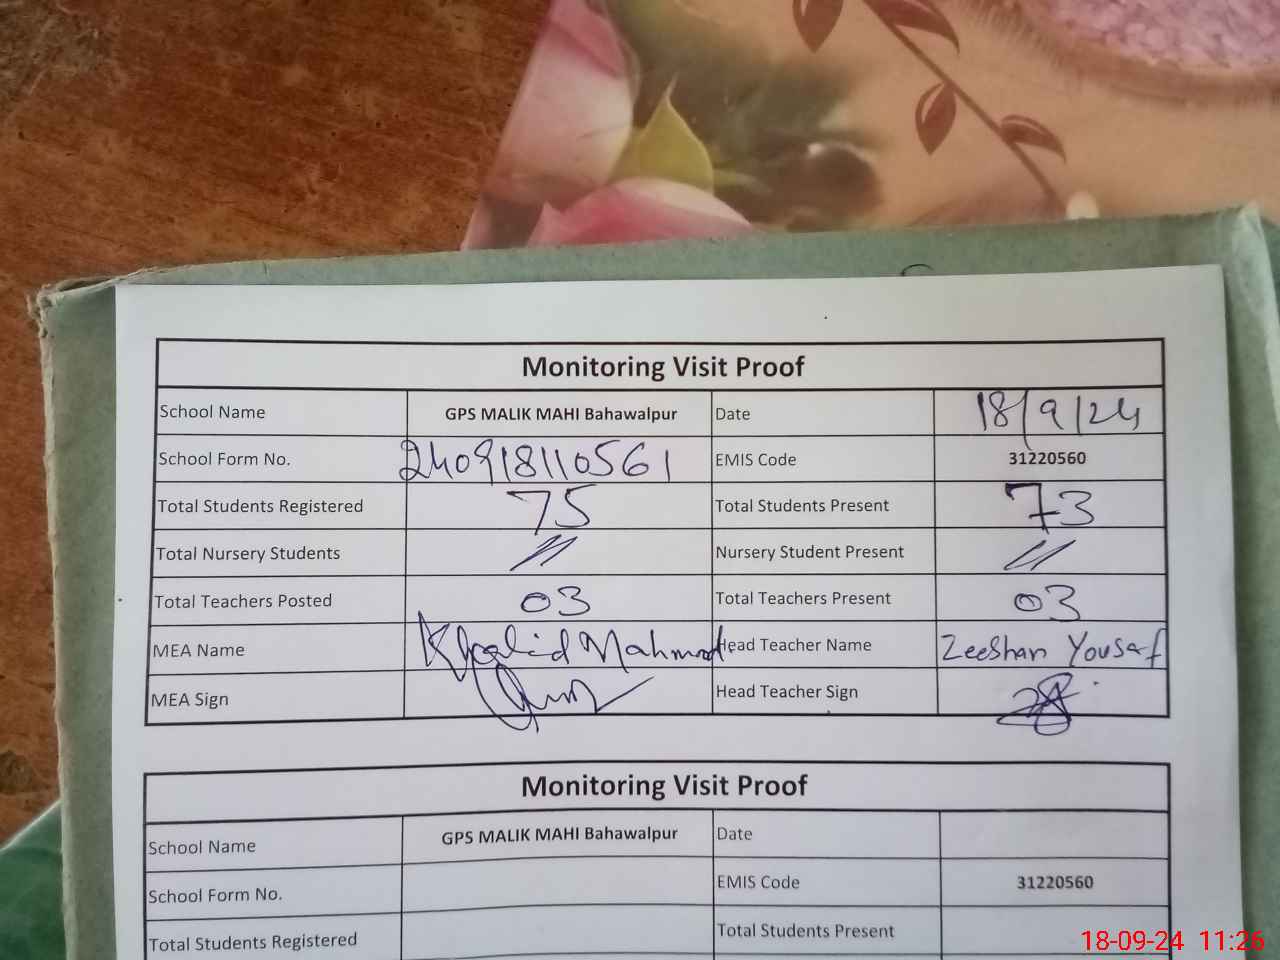 Monitoring Visit Proof
School Name GPS MALIK MAHI Bahawalpur Date 18/9/24
School Form No. 240918110561 EMIS Code 31220560
Total Students Registered 75 Total Students Present 73
Total Nursery Students Nursery Student Present
Total Teachers Posted 03 Total Teachers Present 03
MEA Name Khalid Mahmood Head Teacher Name Zeeshan Yousaf
MEA Sign Head Teacher Sign
Monitoring Visit Proof
School Name GPS MALIK MAHI Bahawalpur Date
School Form No. EMIS Code 31220560
Total Students Registered Total Students Present
18-09-24 11:26